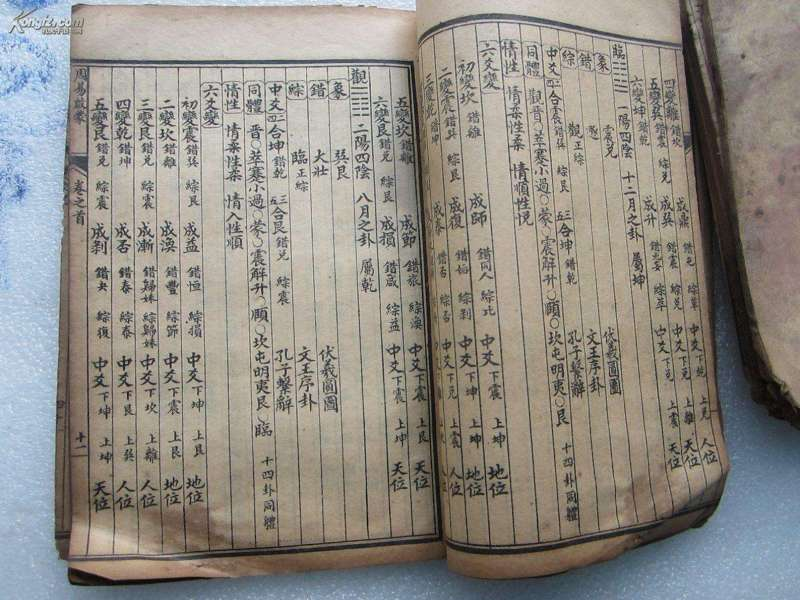 四變離 錯坎 成鼎 錯屯 綜革 中爻 下乾 上兌 人位
五變巽 錯震 綜兌 成巽 錯震 綜兌 中爻 下兌 上離 天位
六變坤 錯乾 成升 錯无妄 綜萃 中爻 下兌 上震 天位
臨 二陰 十二月之卦 屬坤
象 震兌 伏羲圓圖
錯 遯 文王序卦
綜 觀 正綜 孔子繫辭
中爻 二四 合震 錯巽 綜艮 三五 合坤 錯乾
同體 觀晉○萃蹇小過○蒙○震解升○頤○坎屯明夷○艮 十四卦同體
情性 情柔性柔 情順性悅
六爻變
初變坎 錯離 成師 錯同人 綜比 中爻 下震 上坤 地位
二變震 錯巽 綜艮 成復 錯姤 綜剥 中爻 下坤 上坤 地位
三變乾 錯坤 成泰 錯否 綜否 中爻 下兌 上震 人位
五變坎 錯離 成節 錯旅 綜渙 中爻 下震 上艮 天位
六變艮 錯兌 綜震 成損 錯咸 綜益 中爻 下震 上坤 天位
觀 二陽四陰 八月之卦 屬乾
象 巽艮 伏羲圓圖
錯 大壯 文王序卦
綜 臨 正綜 孔子繫辭
中爻 二四 合坤 錯乾 三五 合艮 錯兌 綜震
同體 晉○萃蹇小過○蒙○震解升○頤○坎屯明夷艮○臨 十四卦同體
情性 情柔性柔 情入性順
六爻變
初變震 錯巽 綜艮 成益 錯恒 綜損 中爻 下坤 上艮 地位
二變坎 錯離 成渙 錯豐 綜節 中爻 下震 上艮 地位
三變艮 錯兌 綜震 成漸 錯歸妹 綜歸妹 中爻 下坎 上離 人位
四變乾 錯坤 成否 錯泰 綜泰 中爻 下艮 上巽 人位
五變艮 錯兌 綜震 成剥 錯夬 綜復 中爻 下坤 上坤 天位
周易啟蒙 卷之首 十一
Kongfz.com